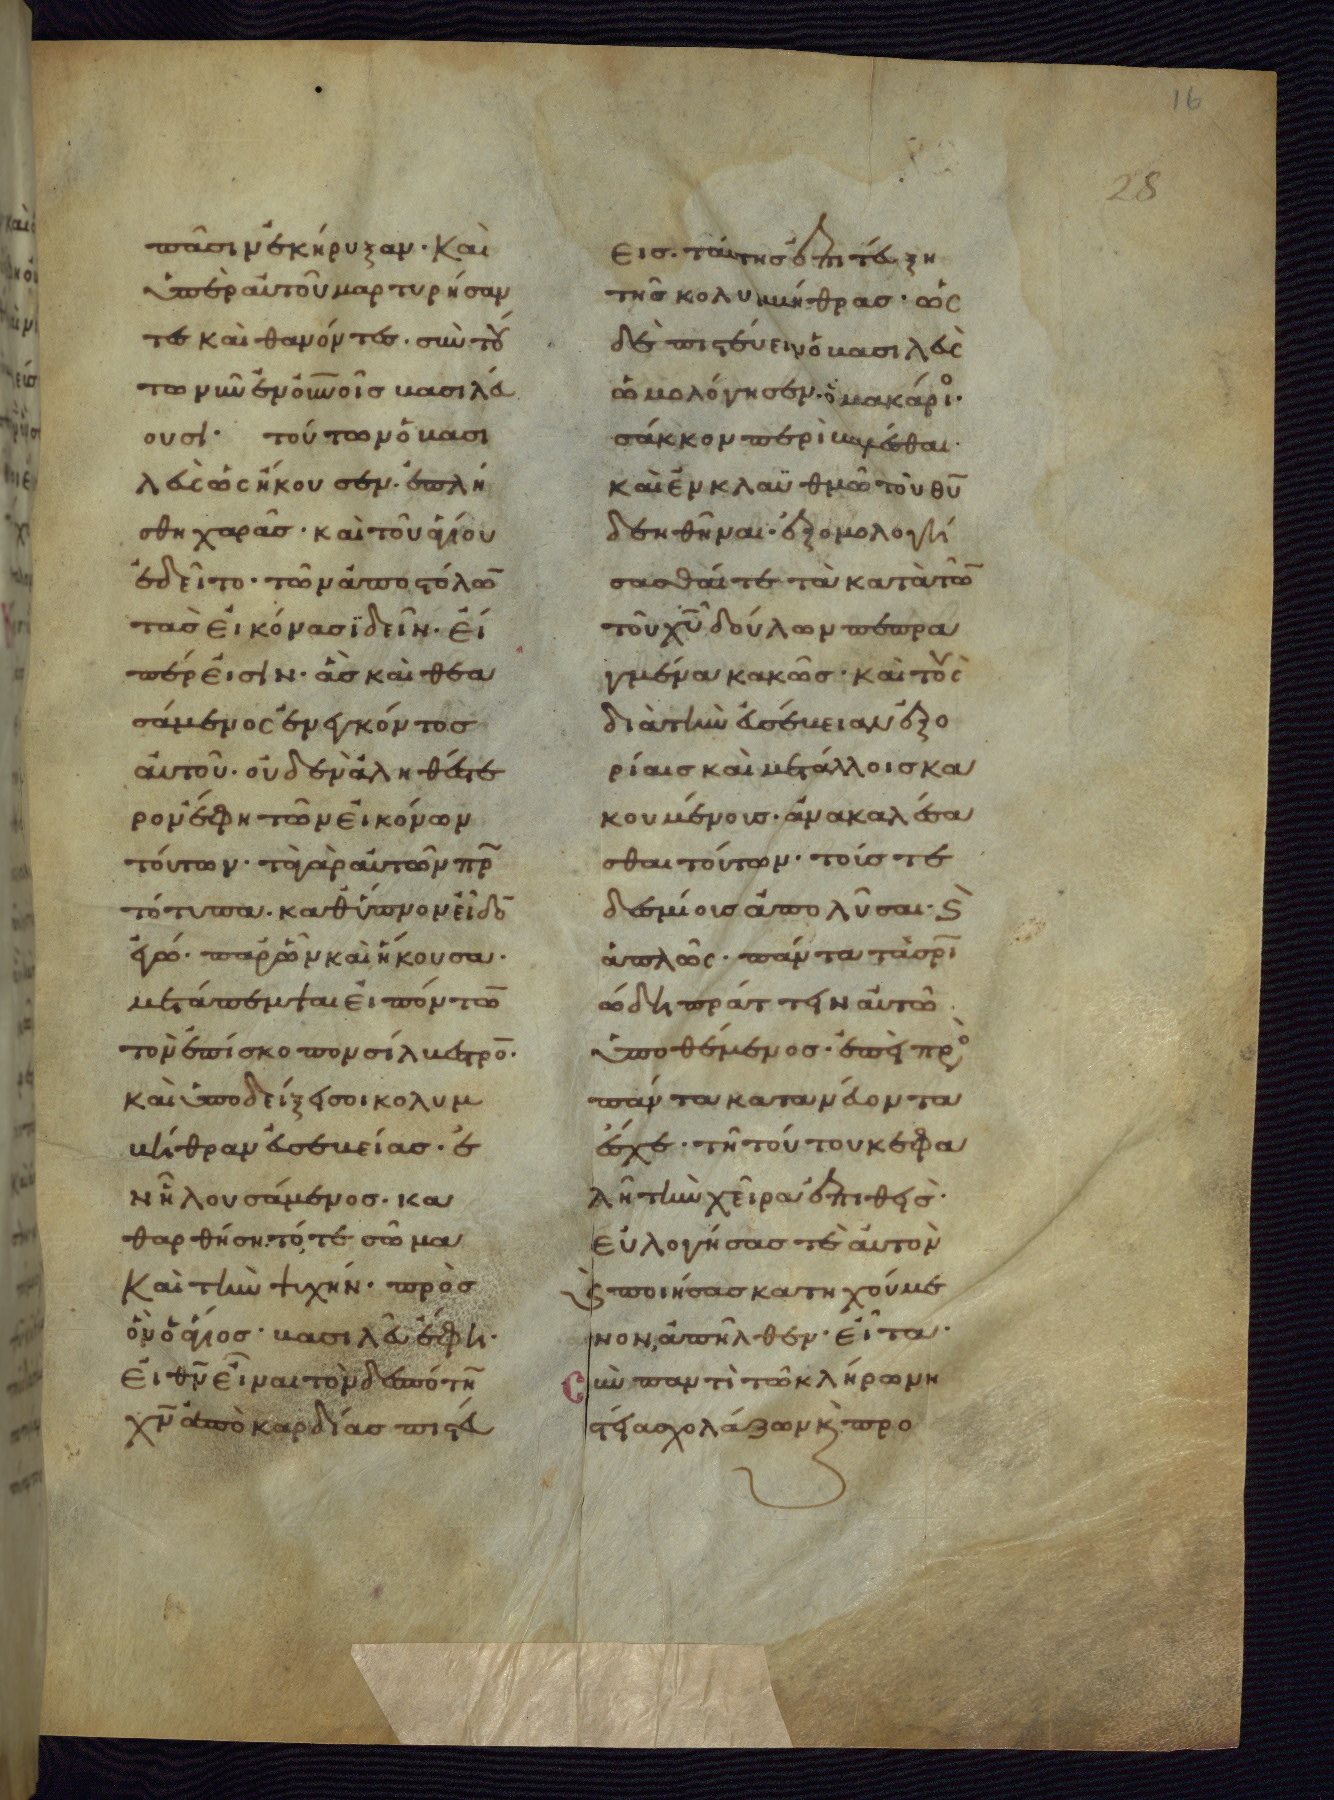 16
28
πᾶσιν ἐκήρυξαν· Καὶ
ὑπὲρ αὐτοῦ μαρτυρήσαν
τε καὶ θανόντες· σὺν τού
τω νῦν ἐν οὐνοῖς βασιλεύ
ουσι· τούτων ὁ βασι
λεὺς ὡς ἤκουσεν· ἐπλή
σθη χαρᾶς· καὶ τοῦ ἁγίου
ἐδεῖτο· τῶν ἀποστόλω̅
τὰς εἰκόνας ἰδεῖν· εἴ
περ εἰσὶν· ἃς καὶ θεα
σάμενος ἐνεγκόντος
αὐτοῦ· οὐδὲν ἀληθέστε
ρον ἔφη τῶν εἰκόνων
τούτων· τὰ γὰρ αὐτῶν πρ̅
τότυπα· καθ' ὕπνον εἶδο̅
ἐγώ· παρ' ὧν καὶ ἤκουσα·
μετάπεμψαι εἰπόντω̅
τὸν ἐπίσκοπον σίλβεστρο̅·
καὶ ὑποδείξει σοι κολυμ
βήθραν εὐσεβείας· ἐ
ν ἧ λουσάμενος· κα
θαρθήση τό, τε σῶμα
Καὶ τὴν ψυχήν· πρὸς
ὃν ὁ ἅγιος· βασιλεῦ ἔφη·
Εἰ θν̅ εἶναι τὸν δεσπότη̅
χν̅ ἀπὸ καρδίας πιστεύ
εις· ταύτης ἐπιτεύξη
τῆς κολυμβήθρας· ὡς
δὲ πιστεύειν ὁ βασιλεὺς
ὡμολόγησεν· ὁ μακάριο·
σάκκον περιβαλέσθαι·
καὶ ἐν κλαυθμῶ τοῦ θυ̅
δεηθῆναι· ἐξομολογή
σασθαί τε τὰ κατὰ τῶ̅
τοῦ χυ̅ δούλων πεπρα
γμένα κακῶς· καὶ τοὺς
διὰ τὴν εὐσέβειαν ἐξο
ρίαις καὶ μετάλλοις κα
κουμένους· ἀνακαλέσα
σθαι τούτων· τοῖς τε
δεσμίοις ἀπολῦσαι· ϗ
ἁπλῶς· πάντα τὰ σρι̅
ώδη πράττειν αὐτῶ
ὑποθέμενος· ἐπεὶ πρὸ
πάντα κατανεύοντα
εἶχε· τῆ τούτου κεφα
λῆ τὴν χεῖρα ἐπιθεὶς·
εὐλογήσας τε αὐτὸν
ϗ ποιήσας κατηχούμε
νον, ἀπῆλθεν· εἶτα·
Σὺν παντὶ τῶ κλήρω νη
στεία σχολάζων ϗ προ